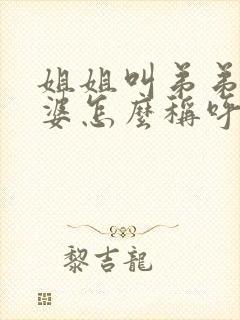 姐姐叫弟弟
婆怎麼稱呼
黎吉龍